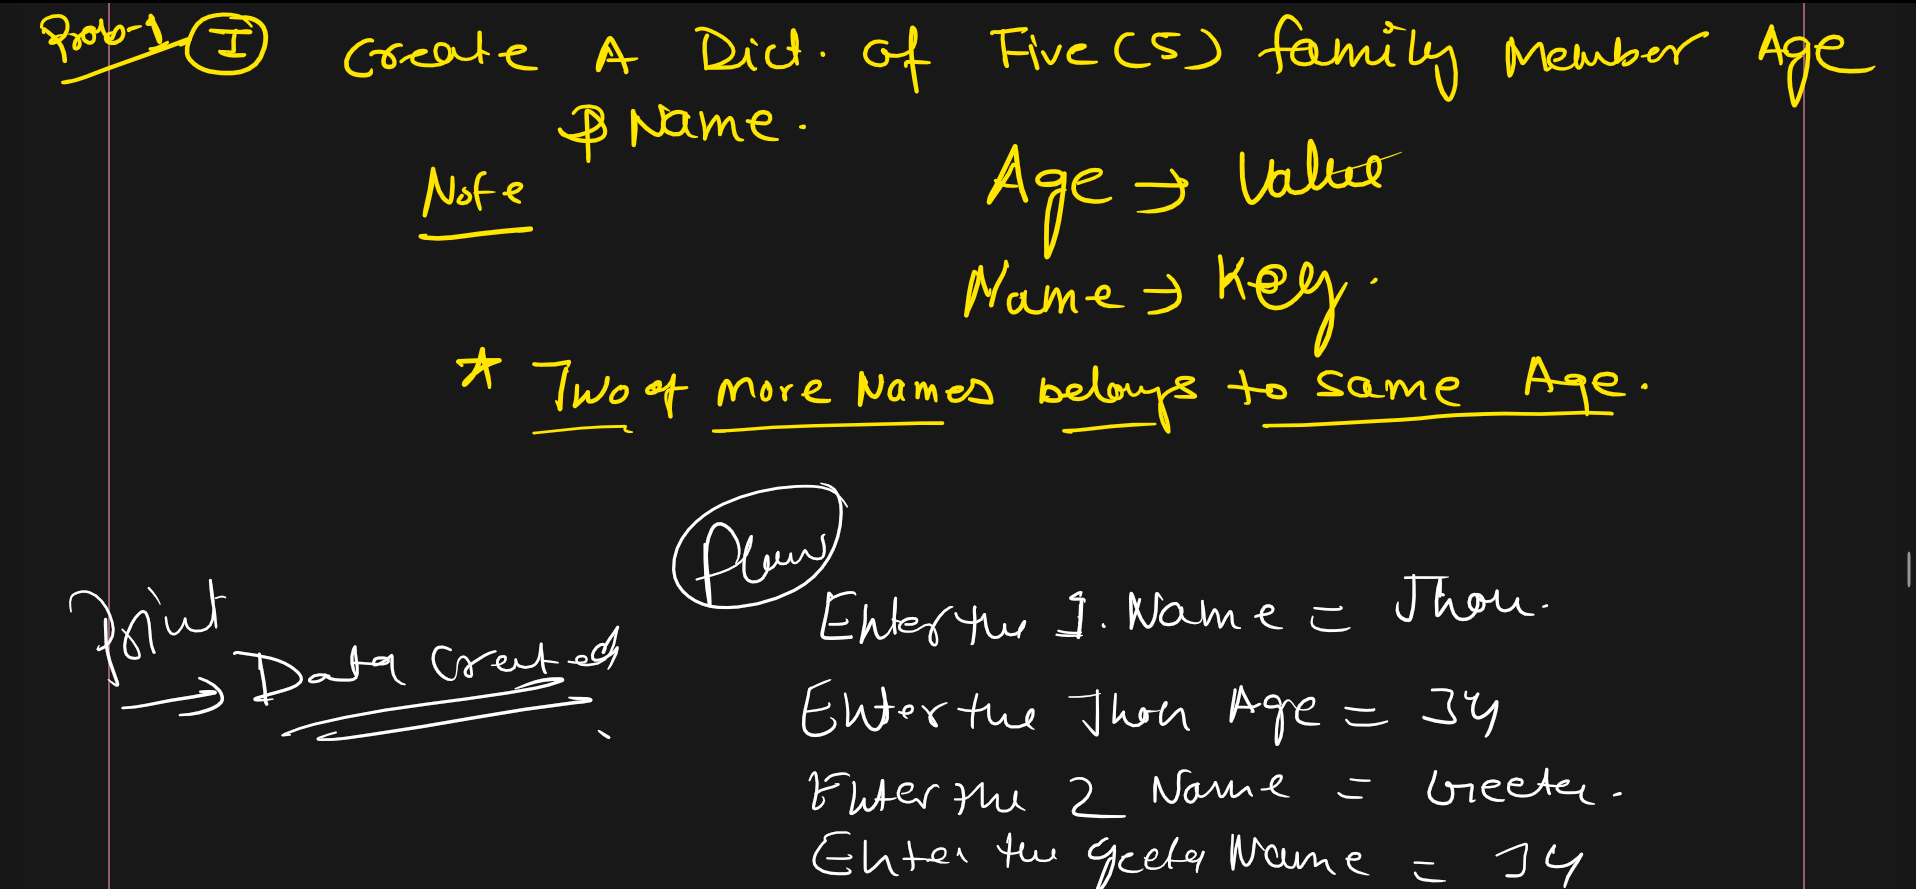 Prob-1 I Create A Dict. of Five (5) family Member Age
& Name.
Note
Age → Value
Name → Key.
* Two of more Names belongs to same Age.
Plan
Print
→ Data Created
Enter the 1. Name = Jhon.
Enter the Jhon Age = 34
Enter the 2 Name = Geeta.
Enter the geeta Name = 34